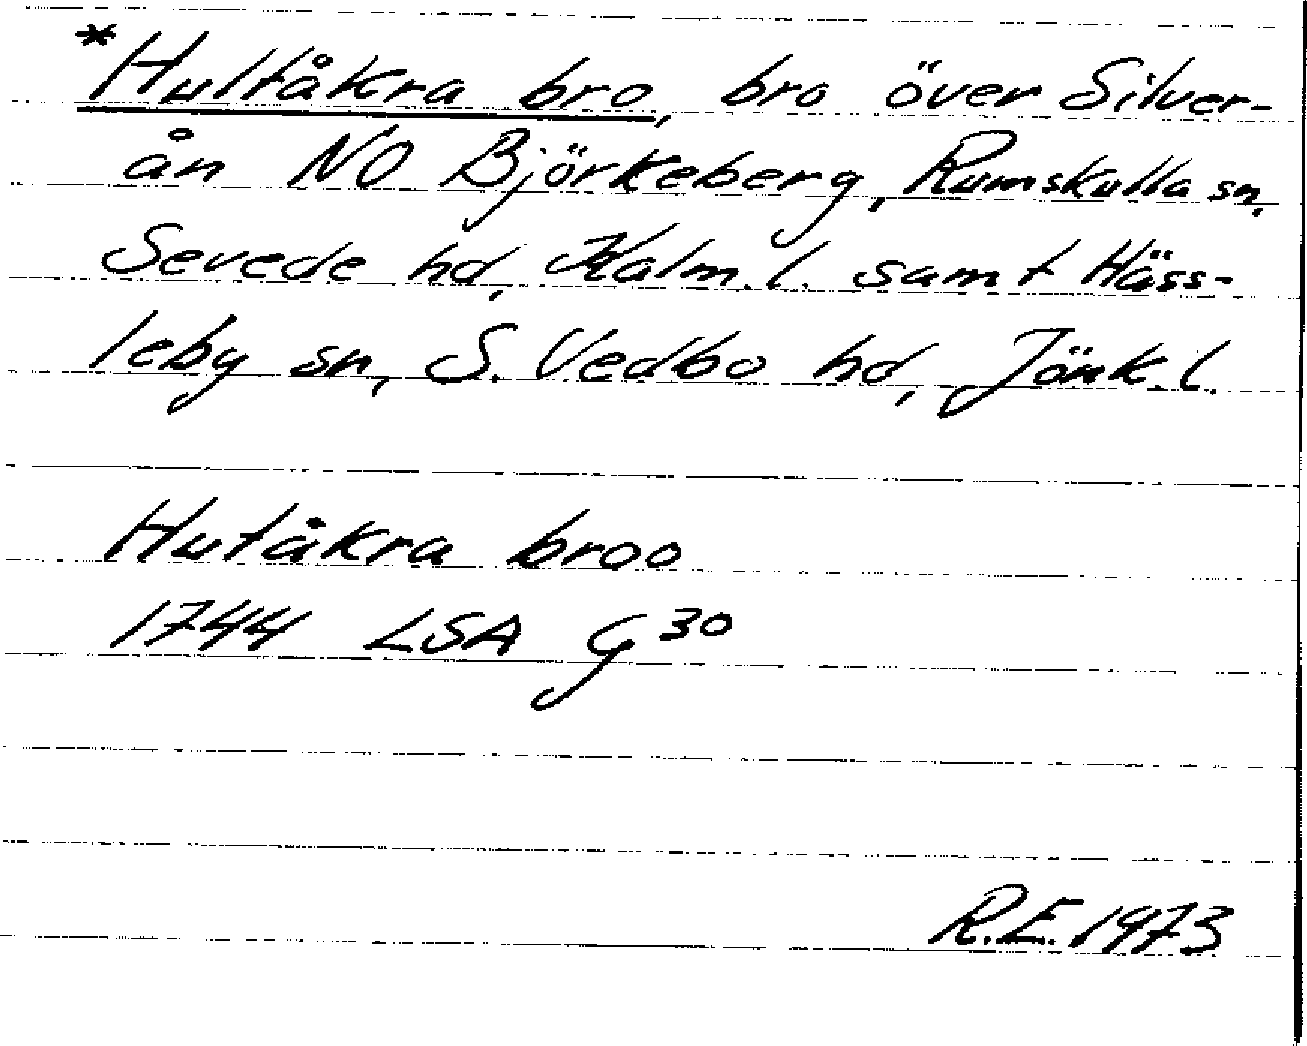 *Hultåkra bro, bro över Silver-
ån NO Björkeberg, Rumskulla sn,
Sevede hd, Kalm. l. samt Häss-
leby sn, S. Vedbo hd, Jönk. l.
Hutåkra broo
1744 LSA G 30
R.E. 1973